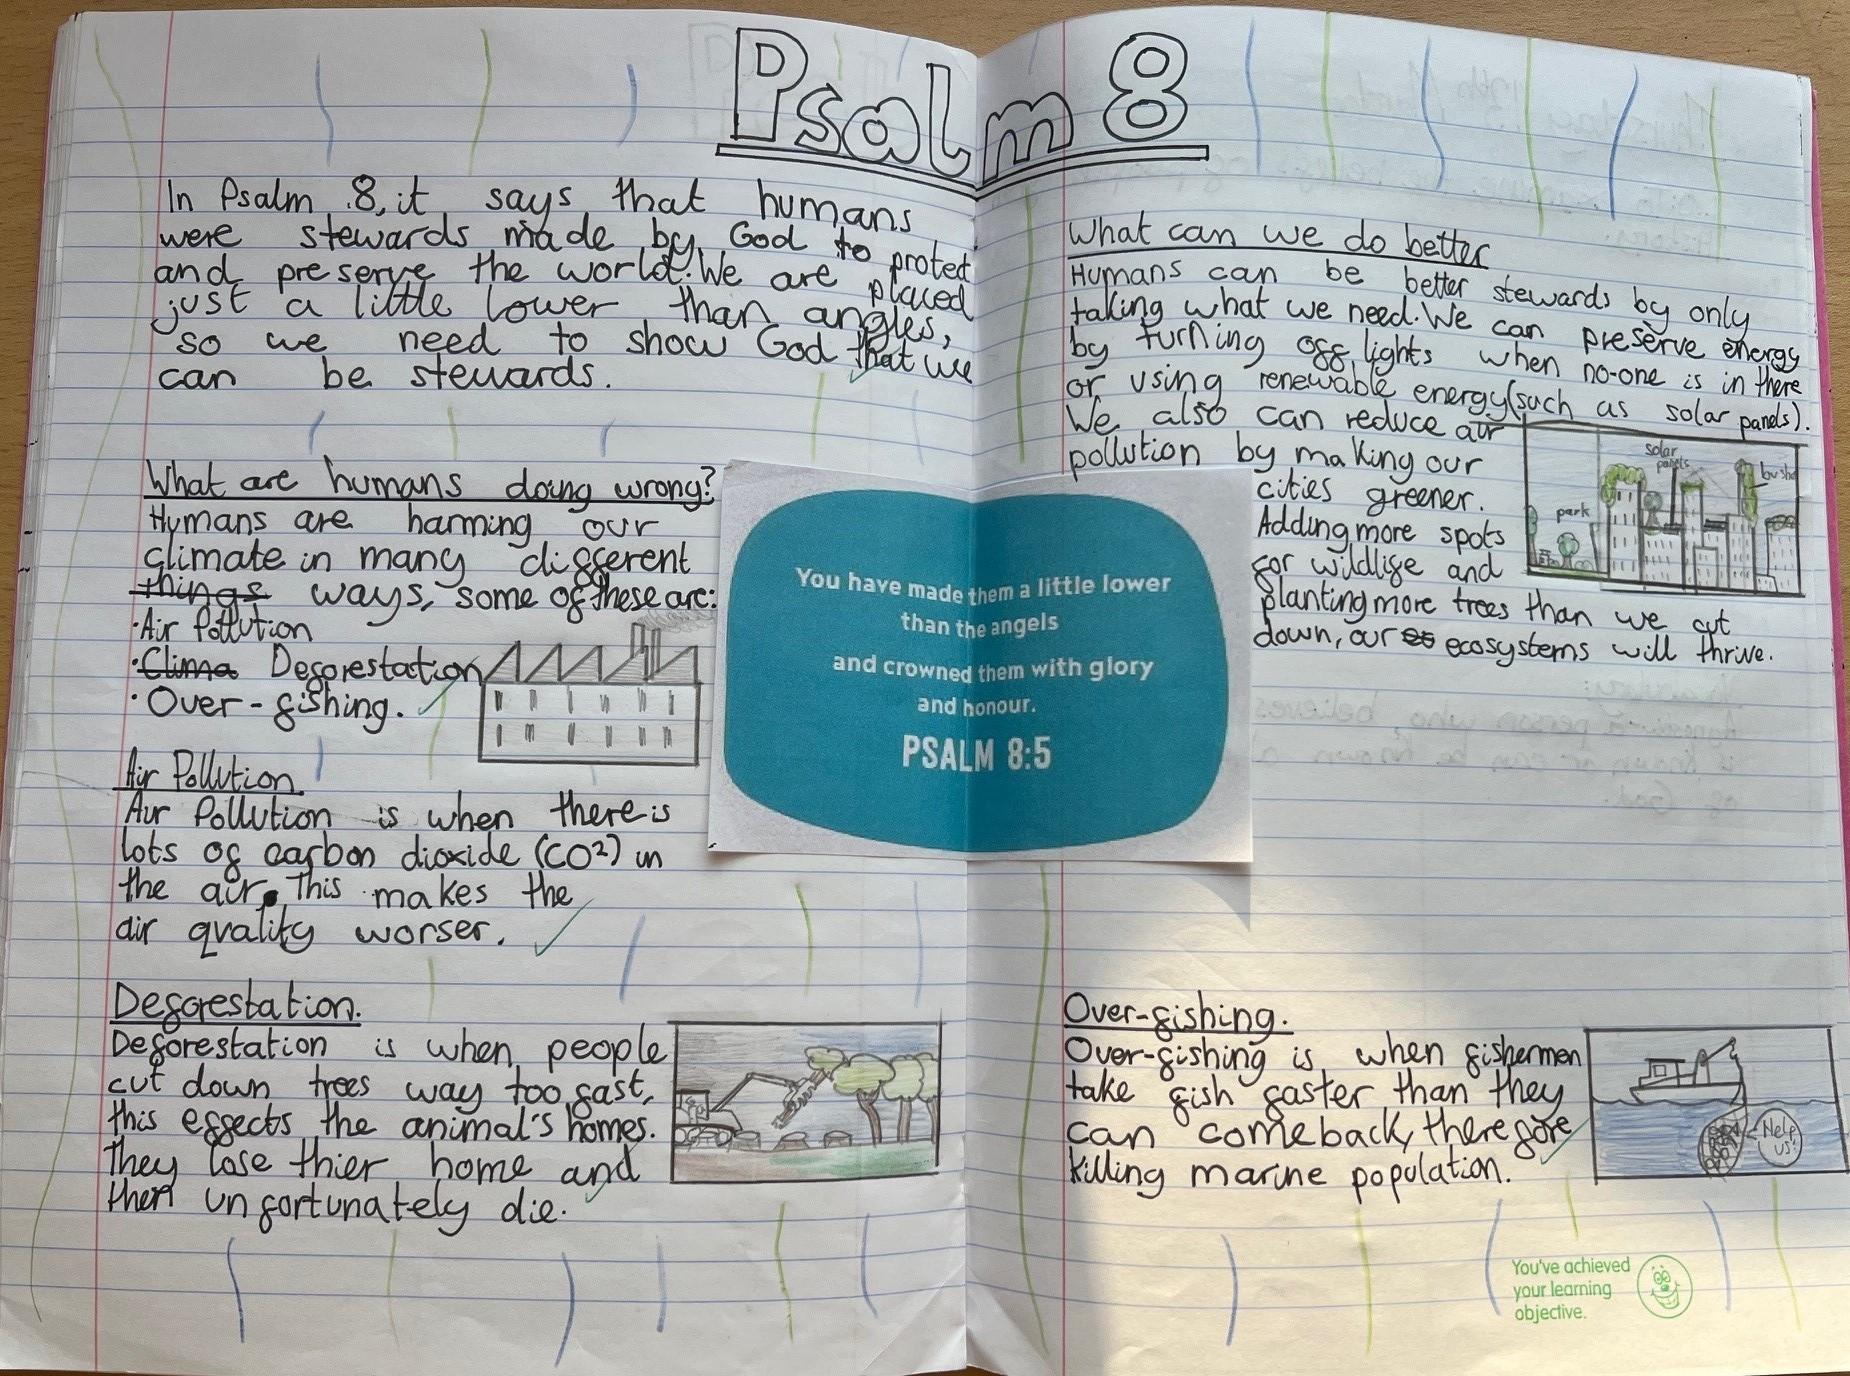 Psalm 8
In Psalm 8, it says that humans
were stewards made by God to protect
and preserve the world. We are placed
just a little lower than angles,
so we need to show God that we
can be stewards.
What are humans doing wrong?
Humans are harming our
climate in many different
things ways, some of these are:
·Air Pollution
·Clima Deforestation
·Over-fishing.
Air Pollution.
Air Pollution is when there is
lots of carbon dioxide (CO²) in
the air. This makes the
air quality worser.
Deforestation.
Deforestation is when people
cut down trees way too fast,
this effects the animal's homes.
They lose thier home and
then unfortunately die.
You have made them a little lower
than the angels
and crowned them with glory
and honour.
PSALM 8:5
What can we do better
Humans can be better stewards by only
taking what we need. We can preserve energy
by turning off lights when no-one is in there
or using renewable energy (such as solar panels).
We also can reduce air
pollution by making our
cities greener.
Adding more spots
for wildlife and
planting more trees than we cut
down, our es ecosystems will thrive.
solar
panels
park
Over-fishing.
Over-fishing is when fishermen
take fish faster than they
can come back, therefore
killing marine population.
Help
us!
You've achieved
your learning
objective.